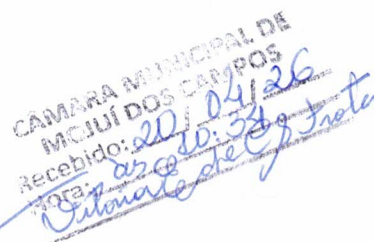 CÂMARA MUNICIPAL DE
MOJUÍ DOS CAMPOS
Recebido: 20/04/26
Hora: às 10:34